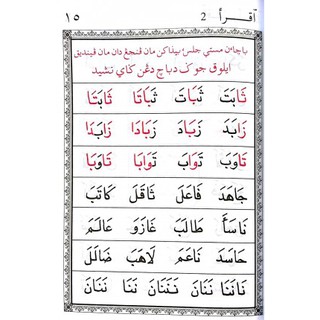 اقرأ 2 ١٥
باچاءن مستي جلس؛ بيذاکن مان ڤنجڠ دان مان ڤينديق
ايلوق جوݢ دباچ دڠن کاي نشيد
ثَابَتَ ثَبَاتَ ثَبَاتَا ثَابَتَا
زَابَدَ زَبَادَ زَبَادَا زَابَدَا
تَاوَبَ تَوَابَ تَوَابَا تَاوَبَا
جَاهَدَ فَاعَلَ ثَاقَلَ كَاتَبَ
نَاسَأَ طَالَبَ غَازَوَ عَالَمَ
حَاسَدَ نَاعَمَ لَاهَبَ ضَالَلَ
نَانَنَا نَنَانَ نَنَنَانَ نَنَا نَنَانَ